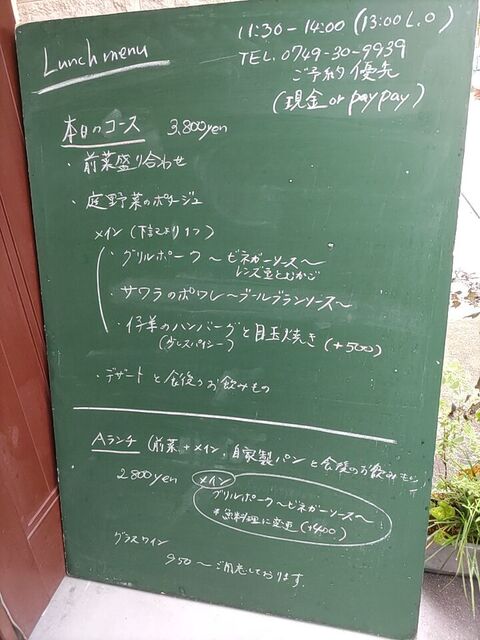 Lunch menu
11:30 - 14:00 (13:00 L.O)
TEL. 0749-30-9939
ご予約優先
(現金 or paypay)
本日のコース 3,800yen
・前菜盛り合わせ
・庭野菜のポタージュ
メイン (下記より1つ)
・グリルポーク 〜 ビネガーソース〜
レンズ豆とむかご
・サワラのポワレ〜ブールブランソース〜
・仔羊のハンバーグと目玉焼き (+500)
(少しスパイシー)
・デザートと食後のお飲みもの
Aランチ (前菜+メイン、自家製パンと食後のお飲みもの)
2800yen
メイン
グリルポーク〜ビネガーソース〜
*魚料理に変更 (+400)
グラスワイン
950〜ご用意しております。